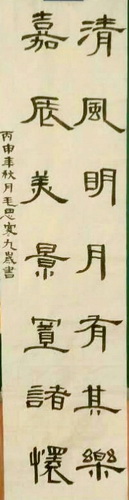 清風明月有其樂
嘉辰美景置諸懷
丙申年秋月毛思寒九歲書